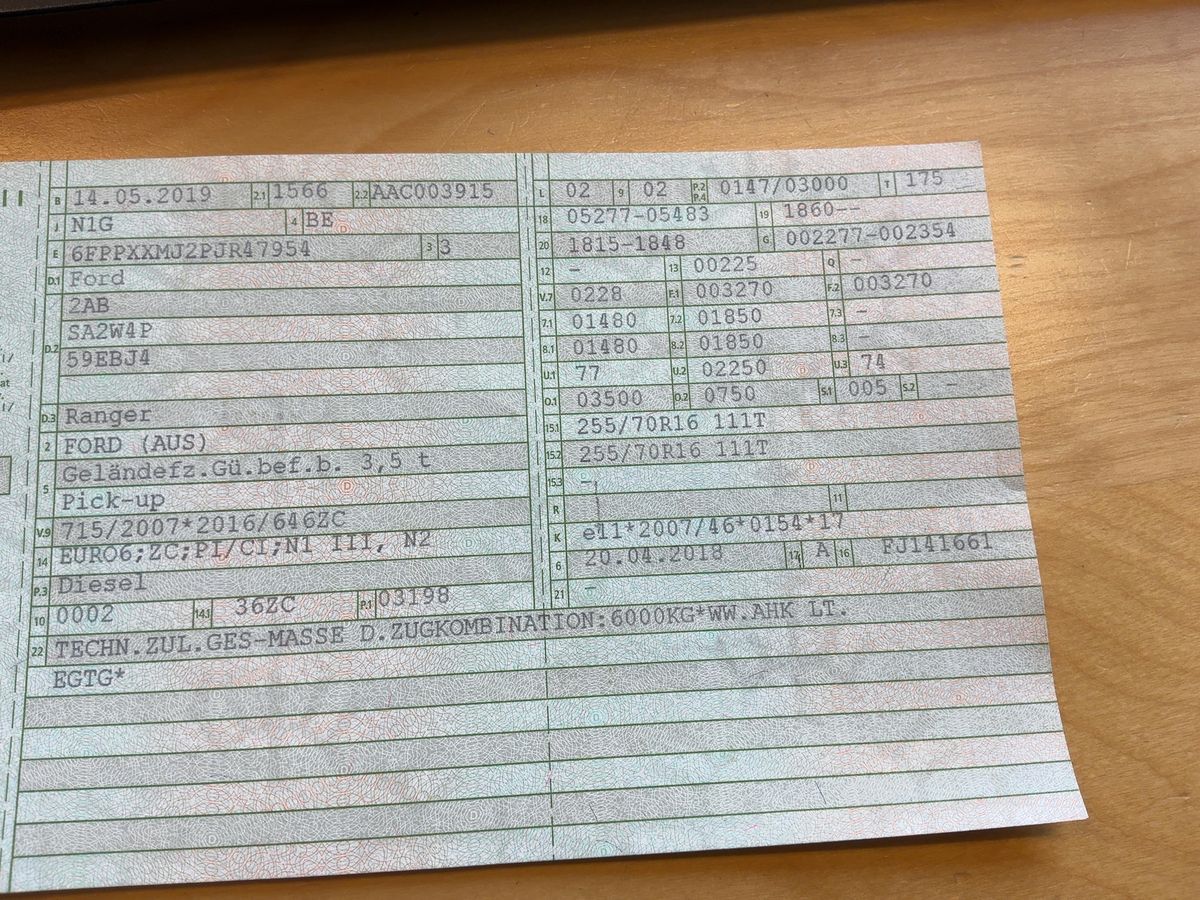 B 14.05.2019 2.1 1566 2.2 AAC003915
J N1G 4 BE
E 6FPPXXMJ2PJR47954 3 3
D.1 Ford
2AB
D.2 SA2W4P
59EBJ4
D.3 Ranger
2 FORD (AUS)
5 Geländefz.Gü.bef.b. 3,5 t
Pick-up
V.9 715/2007*2016/646ZC
14 EURO6;ZC;PI/CI;N1 III, N2
P.3 Diesel
10 0002 14.1 36ZC P.1 03198
L 02 9 02 P.2 P.4 0147/03000 T 175
18 05277-05483 19 1860--
20 1815-1848 G 002277-002354
12 - 13 00225 Q -
V.7 0228 F.1 003270 F.2 003270
7.1 01480 7.2 01850 7.3 -
8.1 01480 8.2 01850 8.3 -
U.1 77 U.2 02250 U.3 74
O.1 03500 O.2 0750 S.1 005 S.2 -
15.1 255/70R16 111T
15.2 255/70R16 111T
15.3 -
R 11
K e11*2007/46*0154*17
6 20.04.2018 17 A 16 FJ141661
21 -
22 TECHN.ZUL.GES-MASSE D.ZUGKOMBINATION:6000KG*WW.AHK LT.
EGTG*